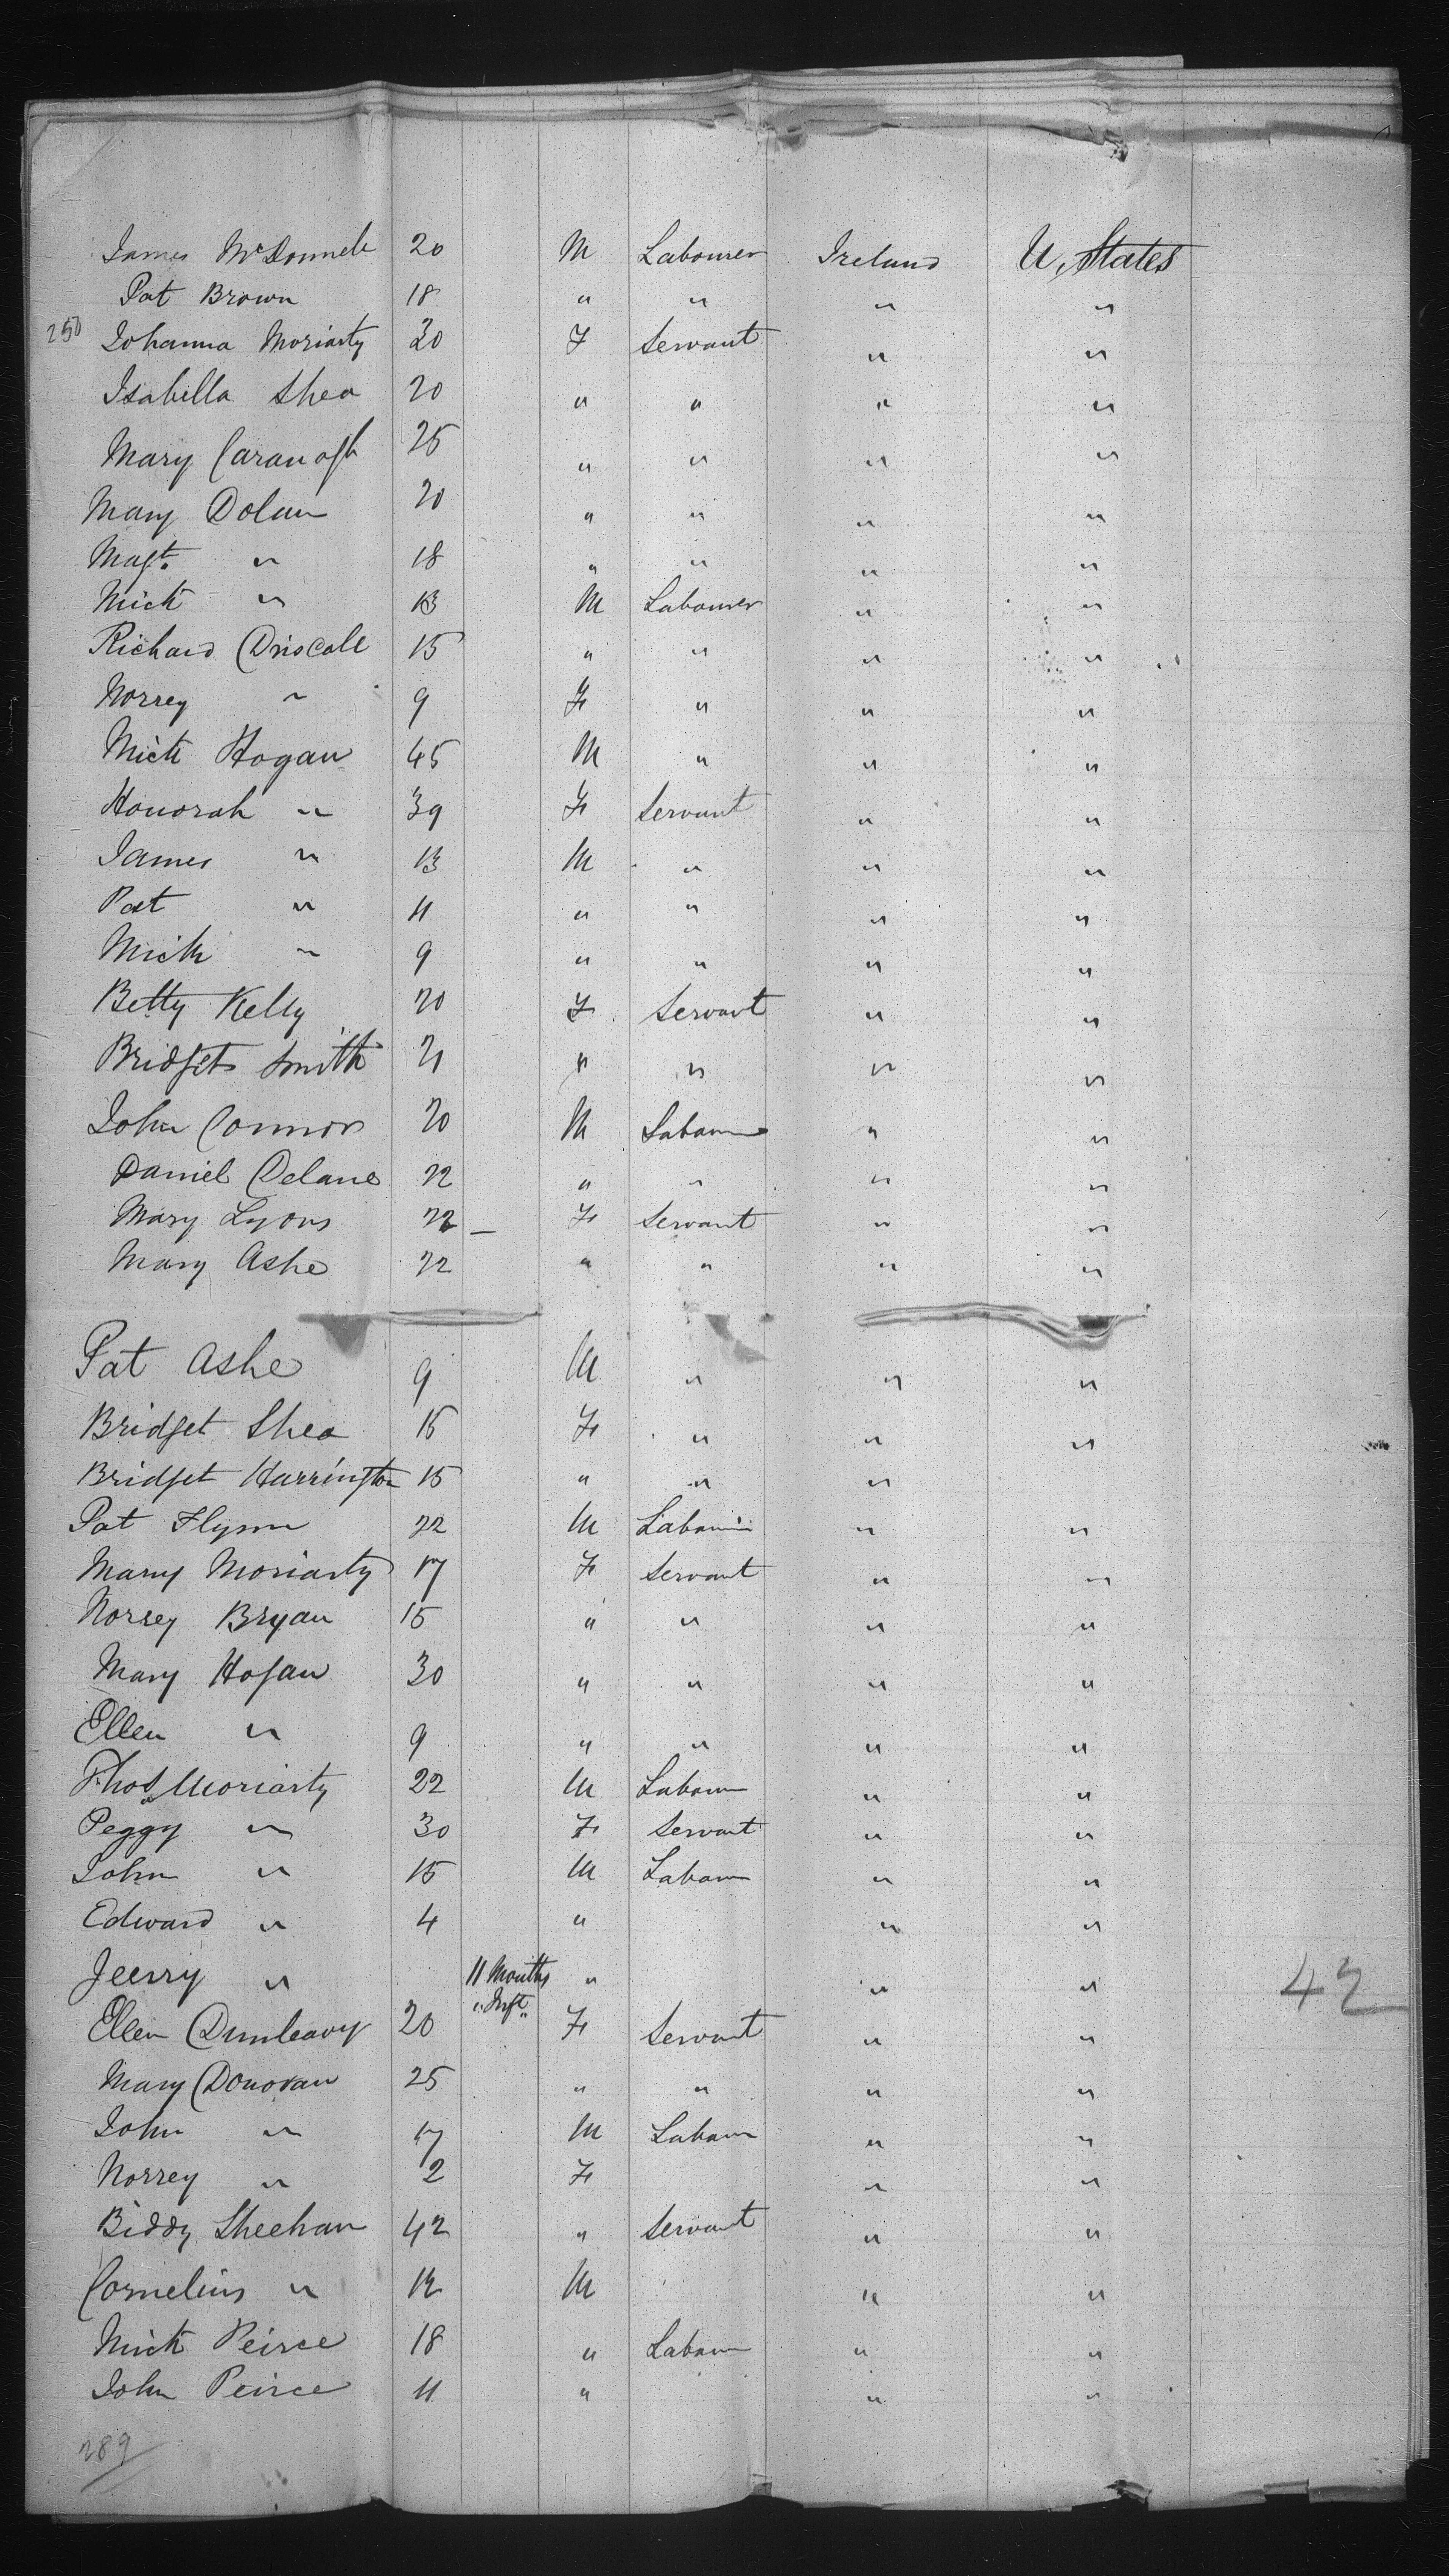 James McDonnell 20 M Labourer Ireland U. States
Pat Brown 18 " " " "
250 Johanna Moriarty 30 F Servant " "
Isabella Shea 20 " " " "
Mary Cavanagh 25 " " " "
Mary Dolan 20 " " " "
Magt. " 18 " " " "
Mick " 13 M Labourer " "
Richard Driscoll 15 " " " "
Norrey " 9 F " " "
Mick Hogan 45 M " " "
Honorah " 39 F Servant " "
James " 13 M " " "
Pat " 11 " " " "
Mick " 9 " " " "
Betty Kelly 20 F Servant " "
Bridget Smith 21 " " " "
John Connor 20 M Labourer " "
Daniel Delane 22 " " " "
Mary Lyons 22 – F Servant " "
Mary Ashe 22 " " " "
Pat Ashe 9 M " " "
Bridget Shea 15 F " " "
Bridget Harrington 15 " " "
Pat Flynn 22 M Labourer " "
Mary Moriarty 17 F Servant " "
Norrey Bryan 15 " " " "
Mary Hogan 30 " " " "
Ellen " 9 " " " "
Thos. Moriarty 22 M Labour " "
Peggy " 30 F Servant " "
John " 15 M Labour " "
Edward " 4 " " "
Jeerry " 11 Months " " " 42
"Inft"
Ellen Dunleavy 20 F Servant " "
Mary Donovan 25 " " " "
John " 17 M Labour " "
Norrey " 2 F " "
Biddy Sheehan 42 " Servant " "
Cornelius " 12 M " "
Mick Peirce 18 " Labour " "
John Peirce 11 " " "
289